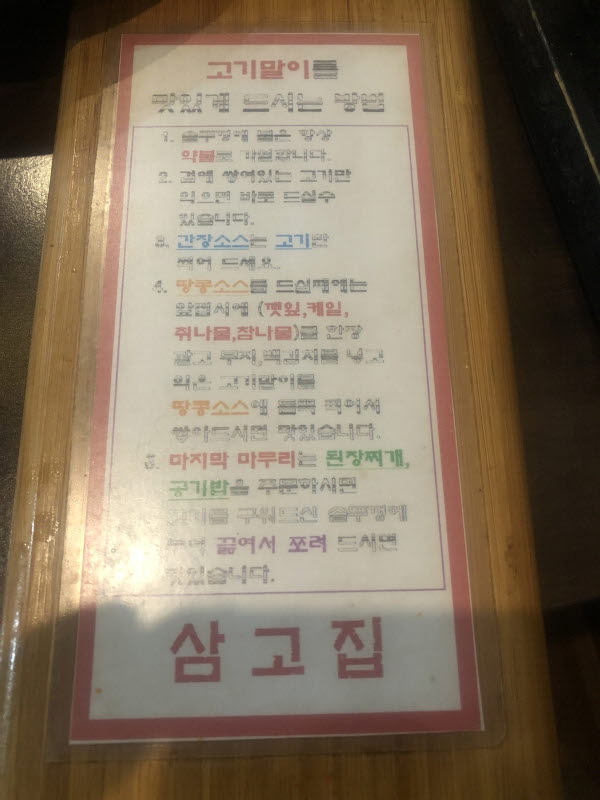 고기말이를
맛있게 드시는 방법
1. 솥뚜껑에 불은 항상
약불로 가열합니다.
2. 겉에 쌓여있는 고기만
익으면 바로 드실수
있습니다.
3. 간장소스는 고기만
찍어 드세요.
4. 땅콩소스를 드실때에는
앞접시에 (깻잎,케일,
취나물,참나물)를 한장
깔고 무지,백김치를 넣고
익은 고기말이를
땅콩소스에 듬뿍 찍어서
쌓아드시면 맛있습니다.
5. 마지막 마무리는 된장찌개,
공기밥을 주문하시면
고기를 구워드신 솥뚜껑에
부어 끓여서 쪼려 드시면
맛있습니다.
삼고집